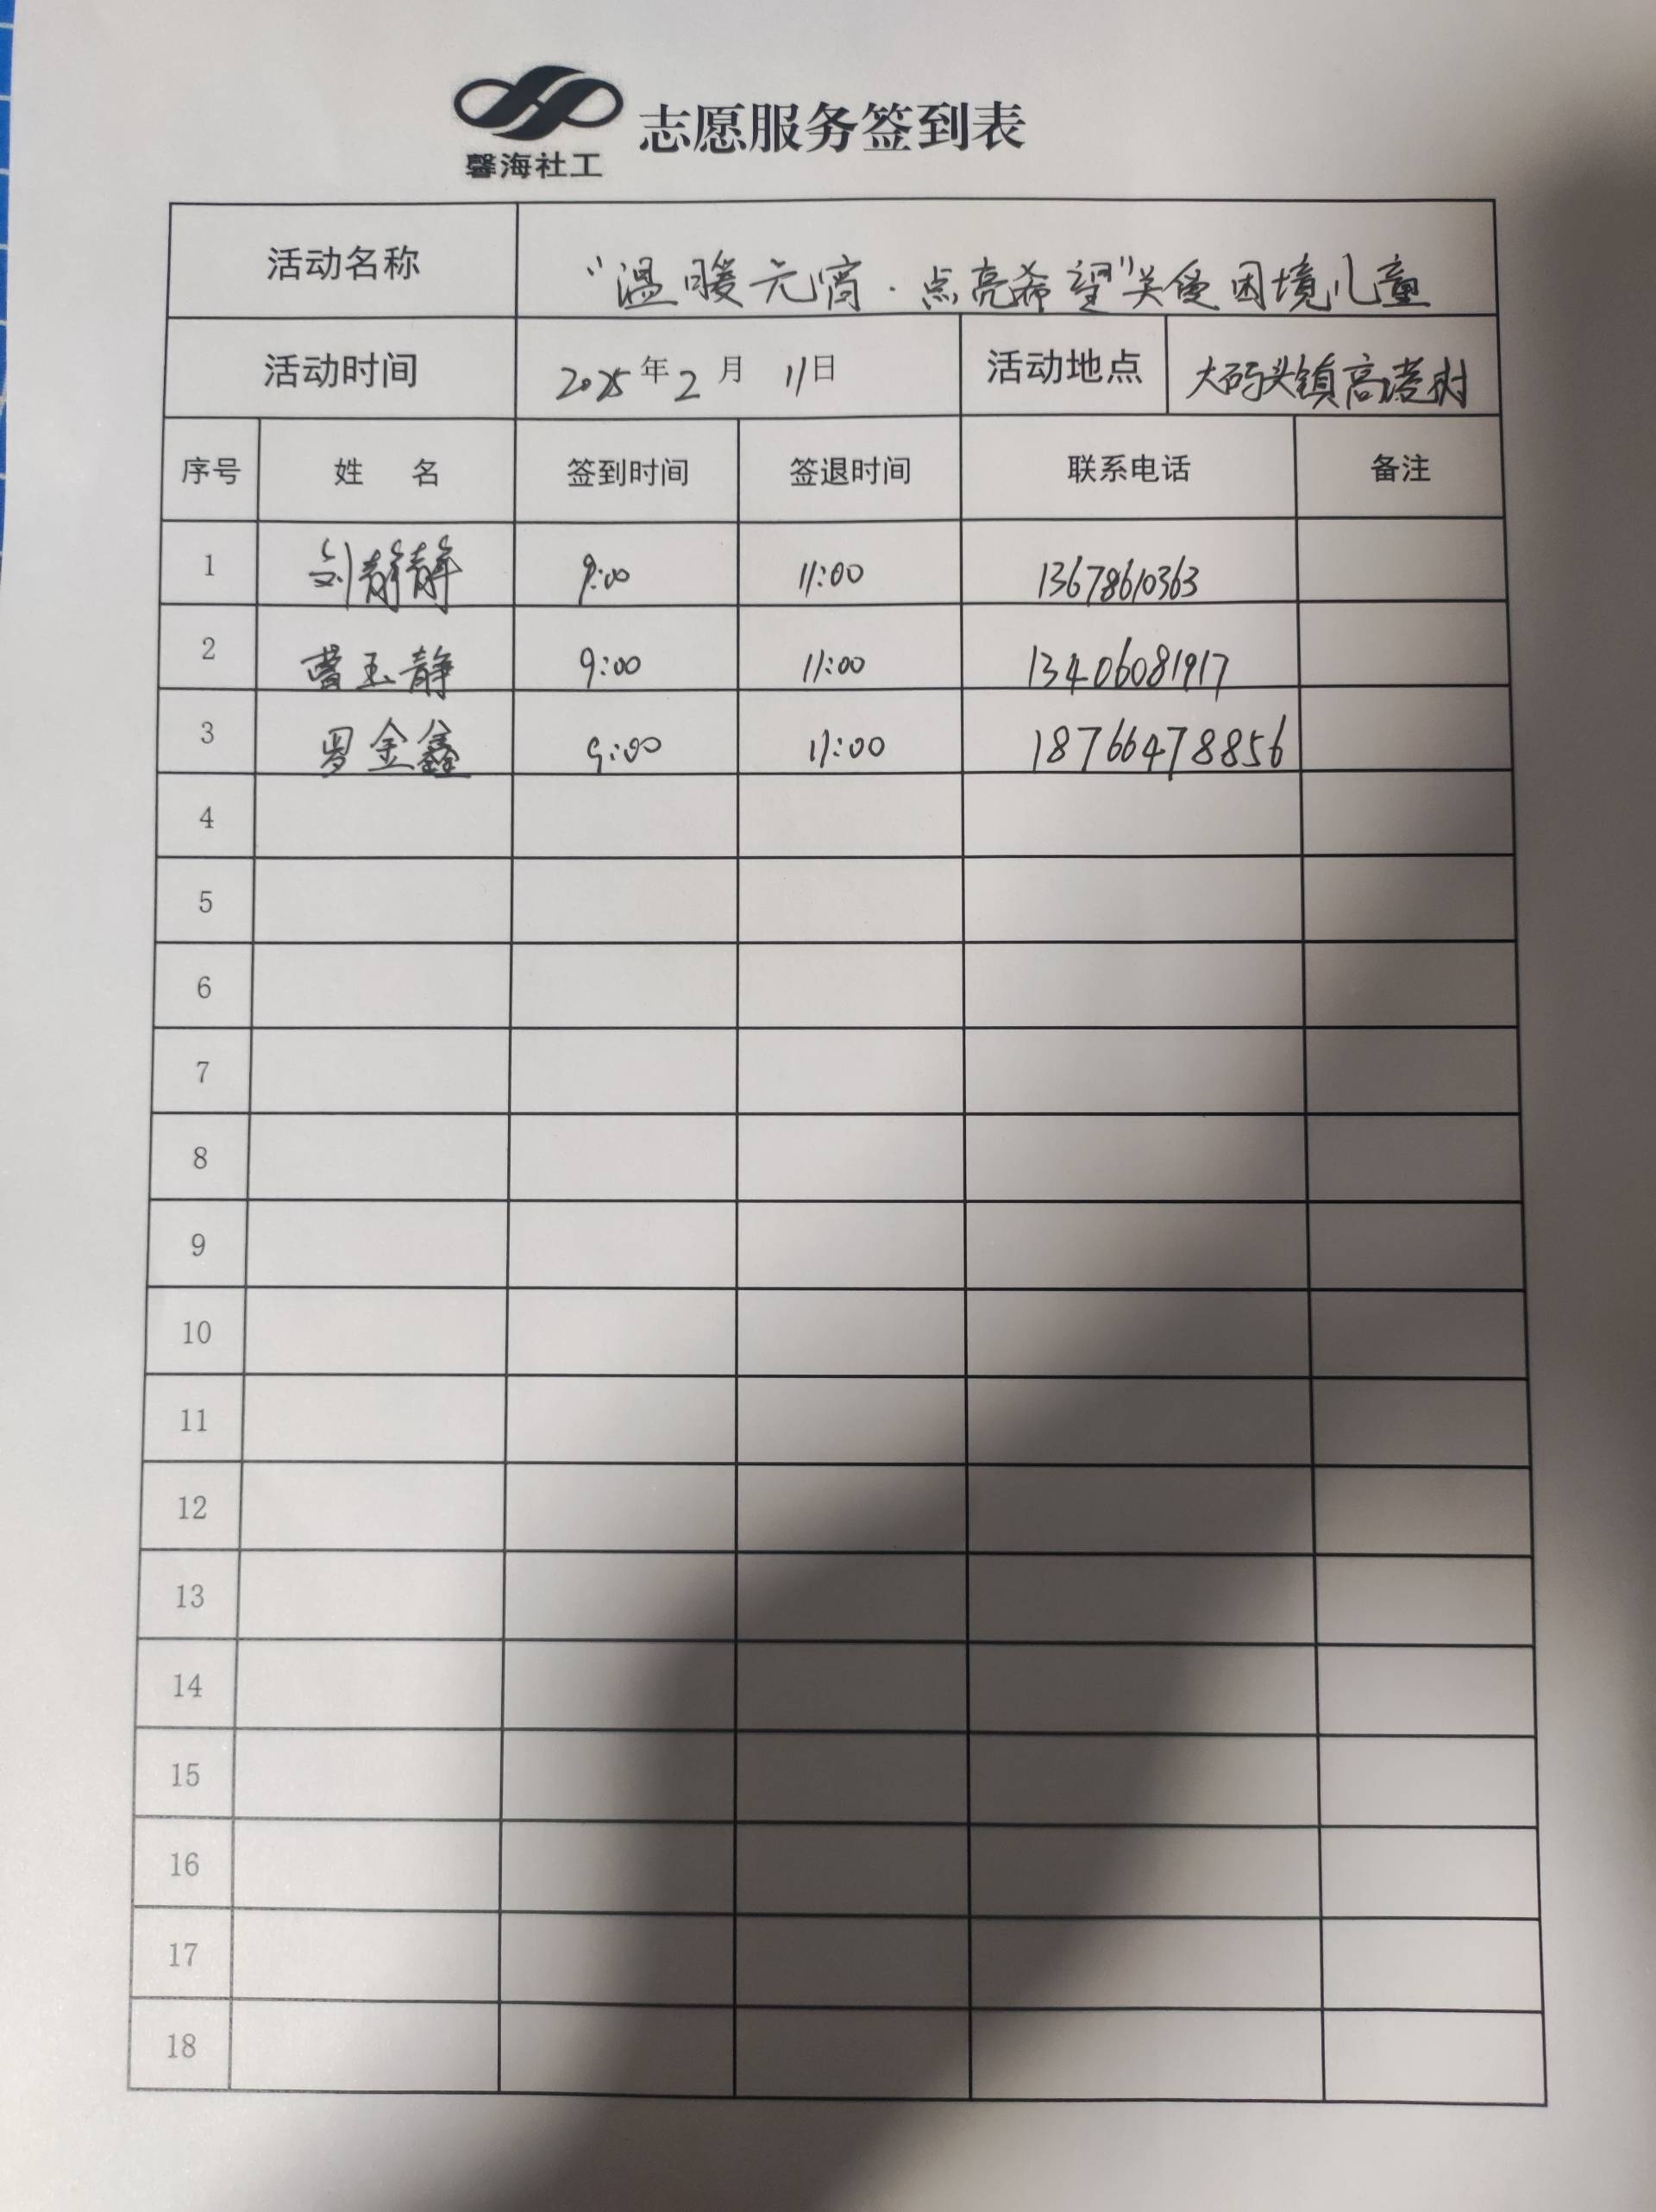 馨海社工
志愿服务签到表
活动名称 "温暖元宵·点亮希望"关爱困境儿童
活动时间 2025年2月11日 活动地点 大码头镇高港村
序号 姓 名 签到时间 签退时间 联系电话 备注
1 刘静静 9:00 11:00 13678610363
2 曹玉静 9:00 11:00 13406081917
3 罗金鑫 9:00 11:00 18766478856
4
5
6
7
8
9
10
11
12
13
14
15
16
17
18